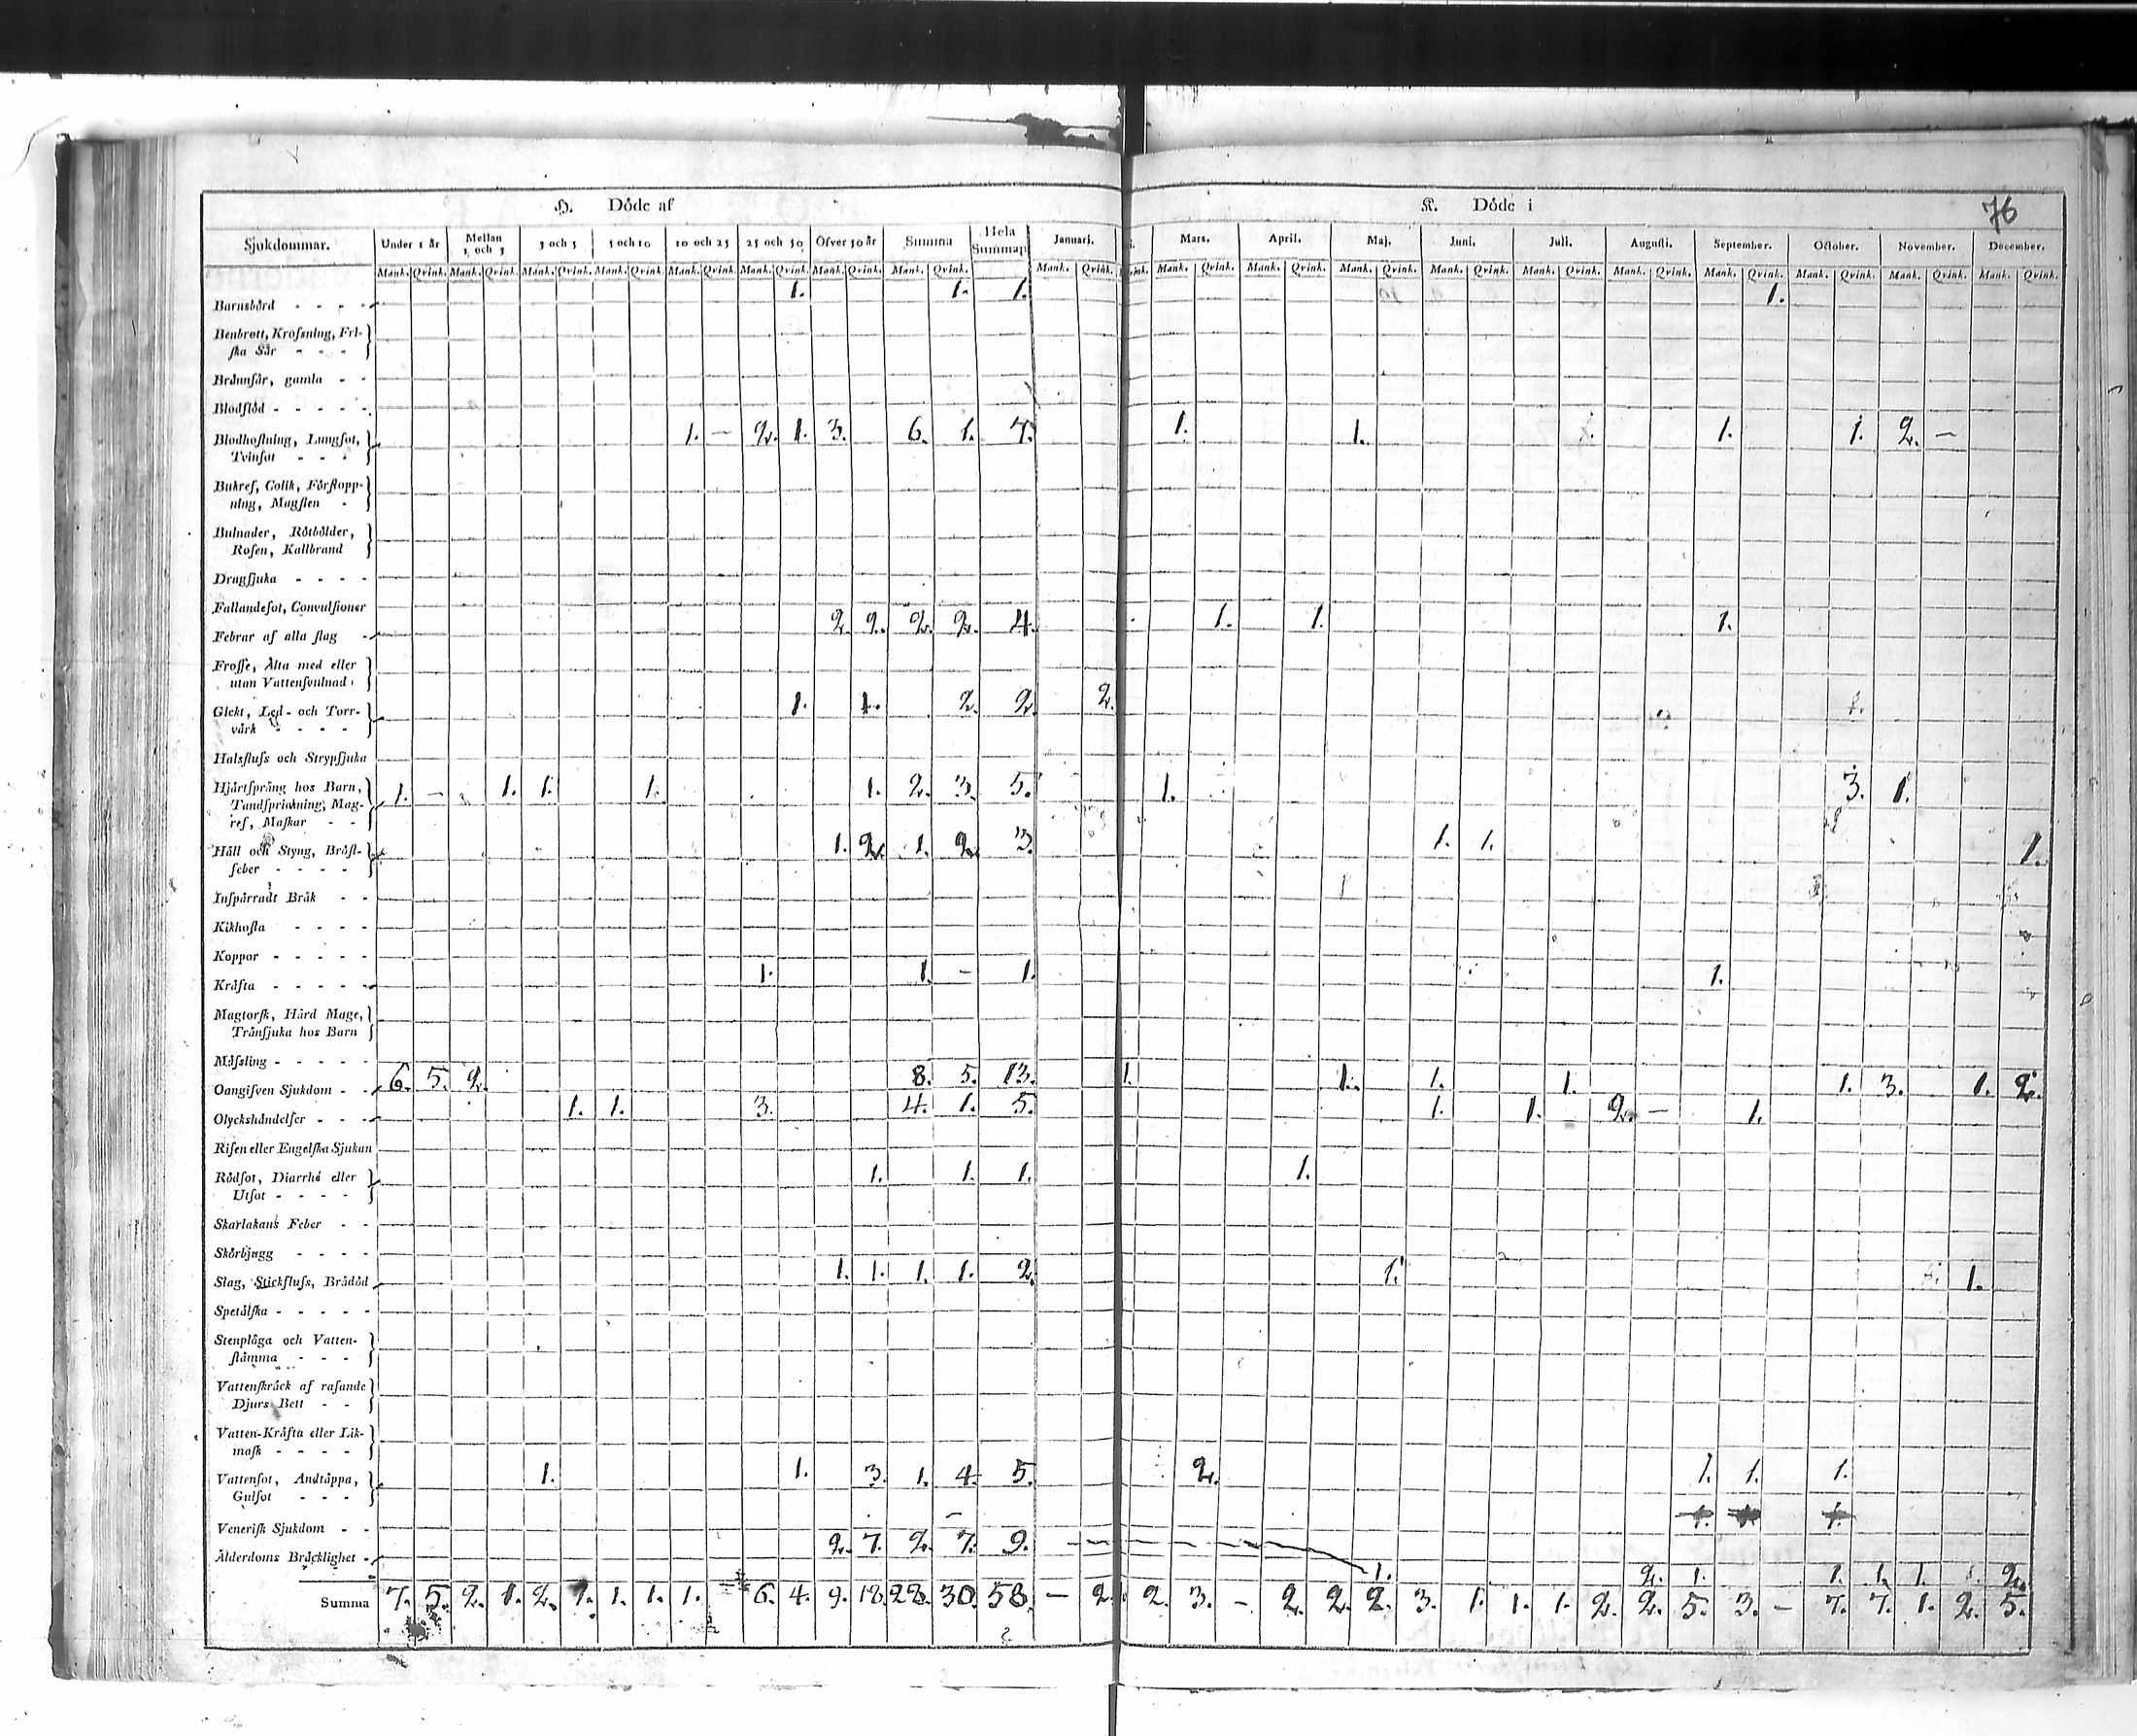 76
H. Döde af K. Döde i
Sjukdommar. Under 1 år Mellan 1 och 3 3 och 5 5 och 10 10 och 25 25 och 50 Öfver 50 år Summa Hela Summan Januari. Mars. April. Maj. Juni. Juli. Augusti. September. October. November. December.
Mank. Qvink. Mank. Qvink. Mank. Qvink. Mank. Qvink. Mank. Qvink. Mank. Qvink. Mank. Qvink. Mank. Qvink. Mank. Qvink. Mank. Qvink. Mank. Qvink. Mank. Qvink. Mank. Qvink. Mank. Qvink. Mank. Qvink. Mank. Qvink. Mank. Qvink. Mank. Qvink. Mank. Qvink.
Barnsbörd - - - - 1. 1. 1. 1.
Benbrott, Krosſning, Fri-
ſka Sår - - -
Brännſår, gamla - -
Blodſlöd - - - - -
Blodhoſtning, Lungſot, 1. — 2. 1. 3. 6. 1. 7. 1. 1. 1. 1. 1. 2. —
Tvinſot - - -
Bukref, Colik, Förſtopp-
ning, Magſten -
Bulnader, Rötbölder,
Roſen, Kallbrand
Dragſjuka - - - -
Fallandeſot, Convulſioner
Febrar af alla ſlag - 2. 2. 2. 2. 4. 1. 1. 1.
Froſſe, Älta med eller
utan Vattenſvulnad
Gickt, Led- och Torr- 1. 1. 2. 2. 2.
värk - - - -
Halsfluſs och Strypſjuka
Hjärtſprång hos Barn, 1. — 1. 1. 1. 1. 2. 3. 5. 1. 3. 1.
Tandſprickning, Mag-
ref, Maſkar - -
Håll och Styng, Bröſt- 1. 2. 1. 2. 3. 1. 1. 1.
feber - - - -
Inſpärradt Bråk - -
Kikhoſta - - - -
Koppor - - - - -
Kräfta - - - - - 1. 1. — 1. 1.
Magtorſk, Hård Mage,
Tränſjuka hos Barn
Mäſsling - - - - -
Oangiſven Sjukdom - - 6. 5. 2. 8. 5. 13. 1. 1. 1. 1. 1. 3. 1. 2.
Olyckshändelſer - - - 1. 1. 3. 4. 1. 5. 1. 1. 2. — 1.
Riſen eller Engelſka Sjukan
Rödſot, Diarrhé eller 1. 1. 1. 1.
Utſot - - - -
Skarlakans Feber - -
Skörbjugg - - - -
Slag, Stickfluſs, Brådöd 1. 1. 1. 1. 2. 1. 1.
Spetälſka - - - - -
Stenplåga och Vatten-
ſtämma - - -
Vattenſkräck af raſande
Djurs Bett - -
Vatten-Kräfta eller Lik-
maſk - - - -
Vattenſot, Andtäppa, 1. 1. 3. 1. 4. 5. 2. 1. 1. 1.
Gulſot - - -
Veneriſk Sjukdom - -
Ålderdoms Bräcklighet - 2. 7. 2. 7. 9. 1. 2. 1. 1. 1. 1. 1. 2.
Summa 7. 5. 2. 1. 2. 1. 1. 1. 1. — 6. 4. 9. 18. 28. 30. 58. — 2. 2. 3. — 2. 2. 2. 3. 1. 1. 1. 2. 2. 5. 3. — 7. 7. 1. 2. 5.